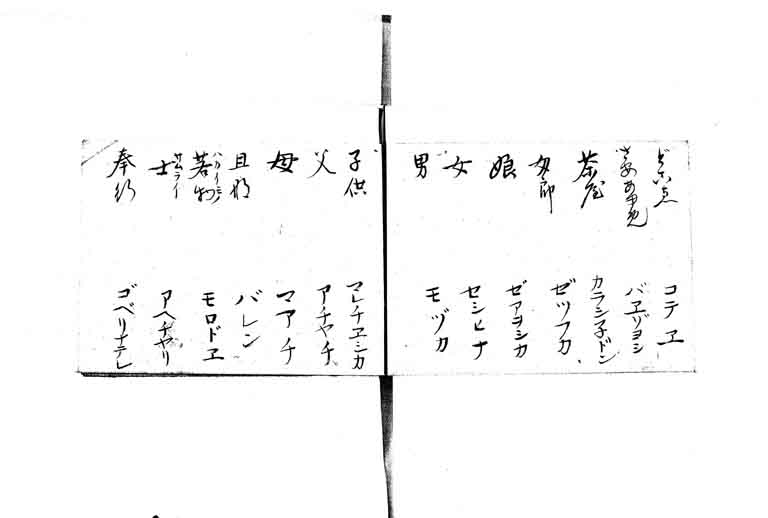 コテヱ
バヱヅヨシ
茶屋 カラシ子ドン
女郎 ゼツフカ
娘 ゼアヲシカ
女 セシヒナ
男 モヅカ
子供 マレチヱシカ
父 アチヤチ
母 マアチ
旦那 バレン
若物 モロドヱ
士 サムライ アヘチヤリ
奉行 ゴベリナテレ